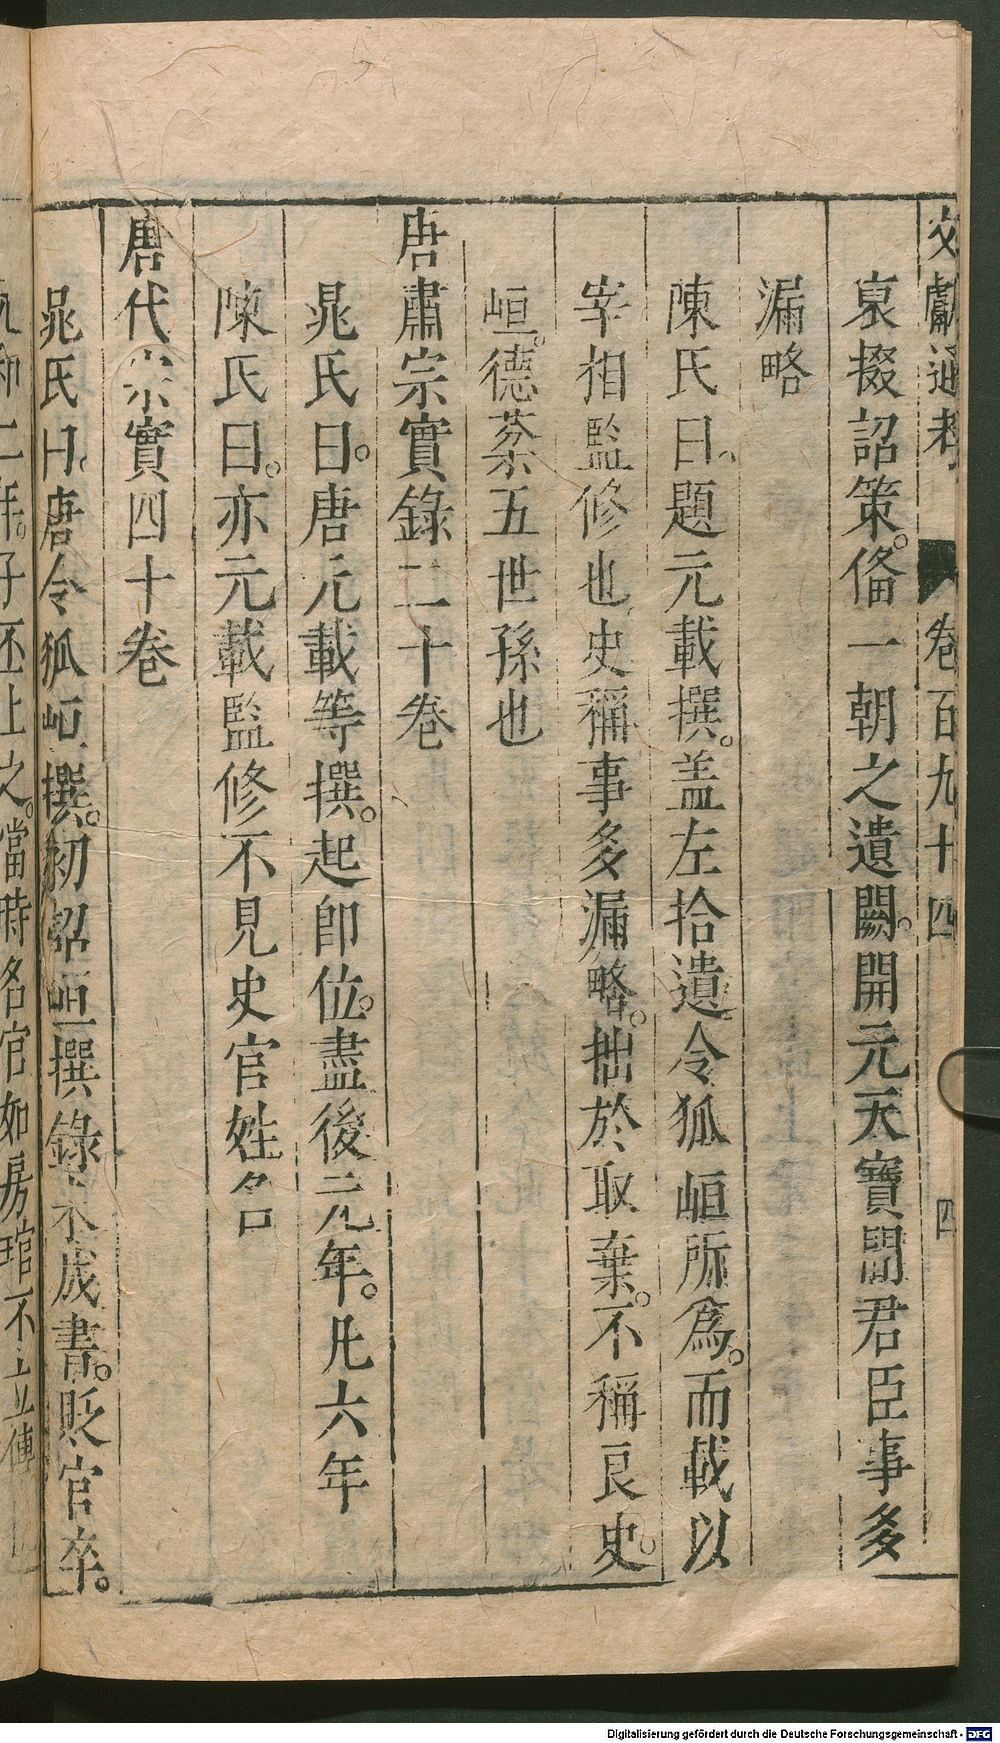 文獻通考 卷百九十四 四
裒掇詔策。俻一朝之遺闕。開元天寶間君臣事多
漏略
陳氏曰。題元載撰。盖左拾遺令狐峘所爲。而載以
宰相監修也。史稱事多漏略。拙於取棄。不稱良史。
峘。德棻五世孫也
唐肅宗實錄二十卷
晁氏曰。唐元載等撰。起卽位。盡後元年。凡六年
陳氏曰。亦元載監修不見史官姓名
唐代宗實四十卷
晁氏曰。唐令狐峘撰。初詔峘撰錄未成書。貶官卒。
元和二年。子丕上之。當時名官如房琯不立傳
Digitalisierung gefördert durch die Deutsche Forschungsgemeinschaft - DFG